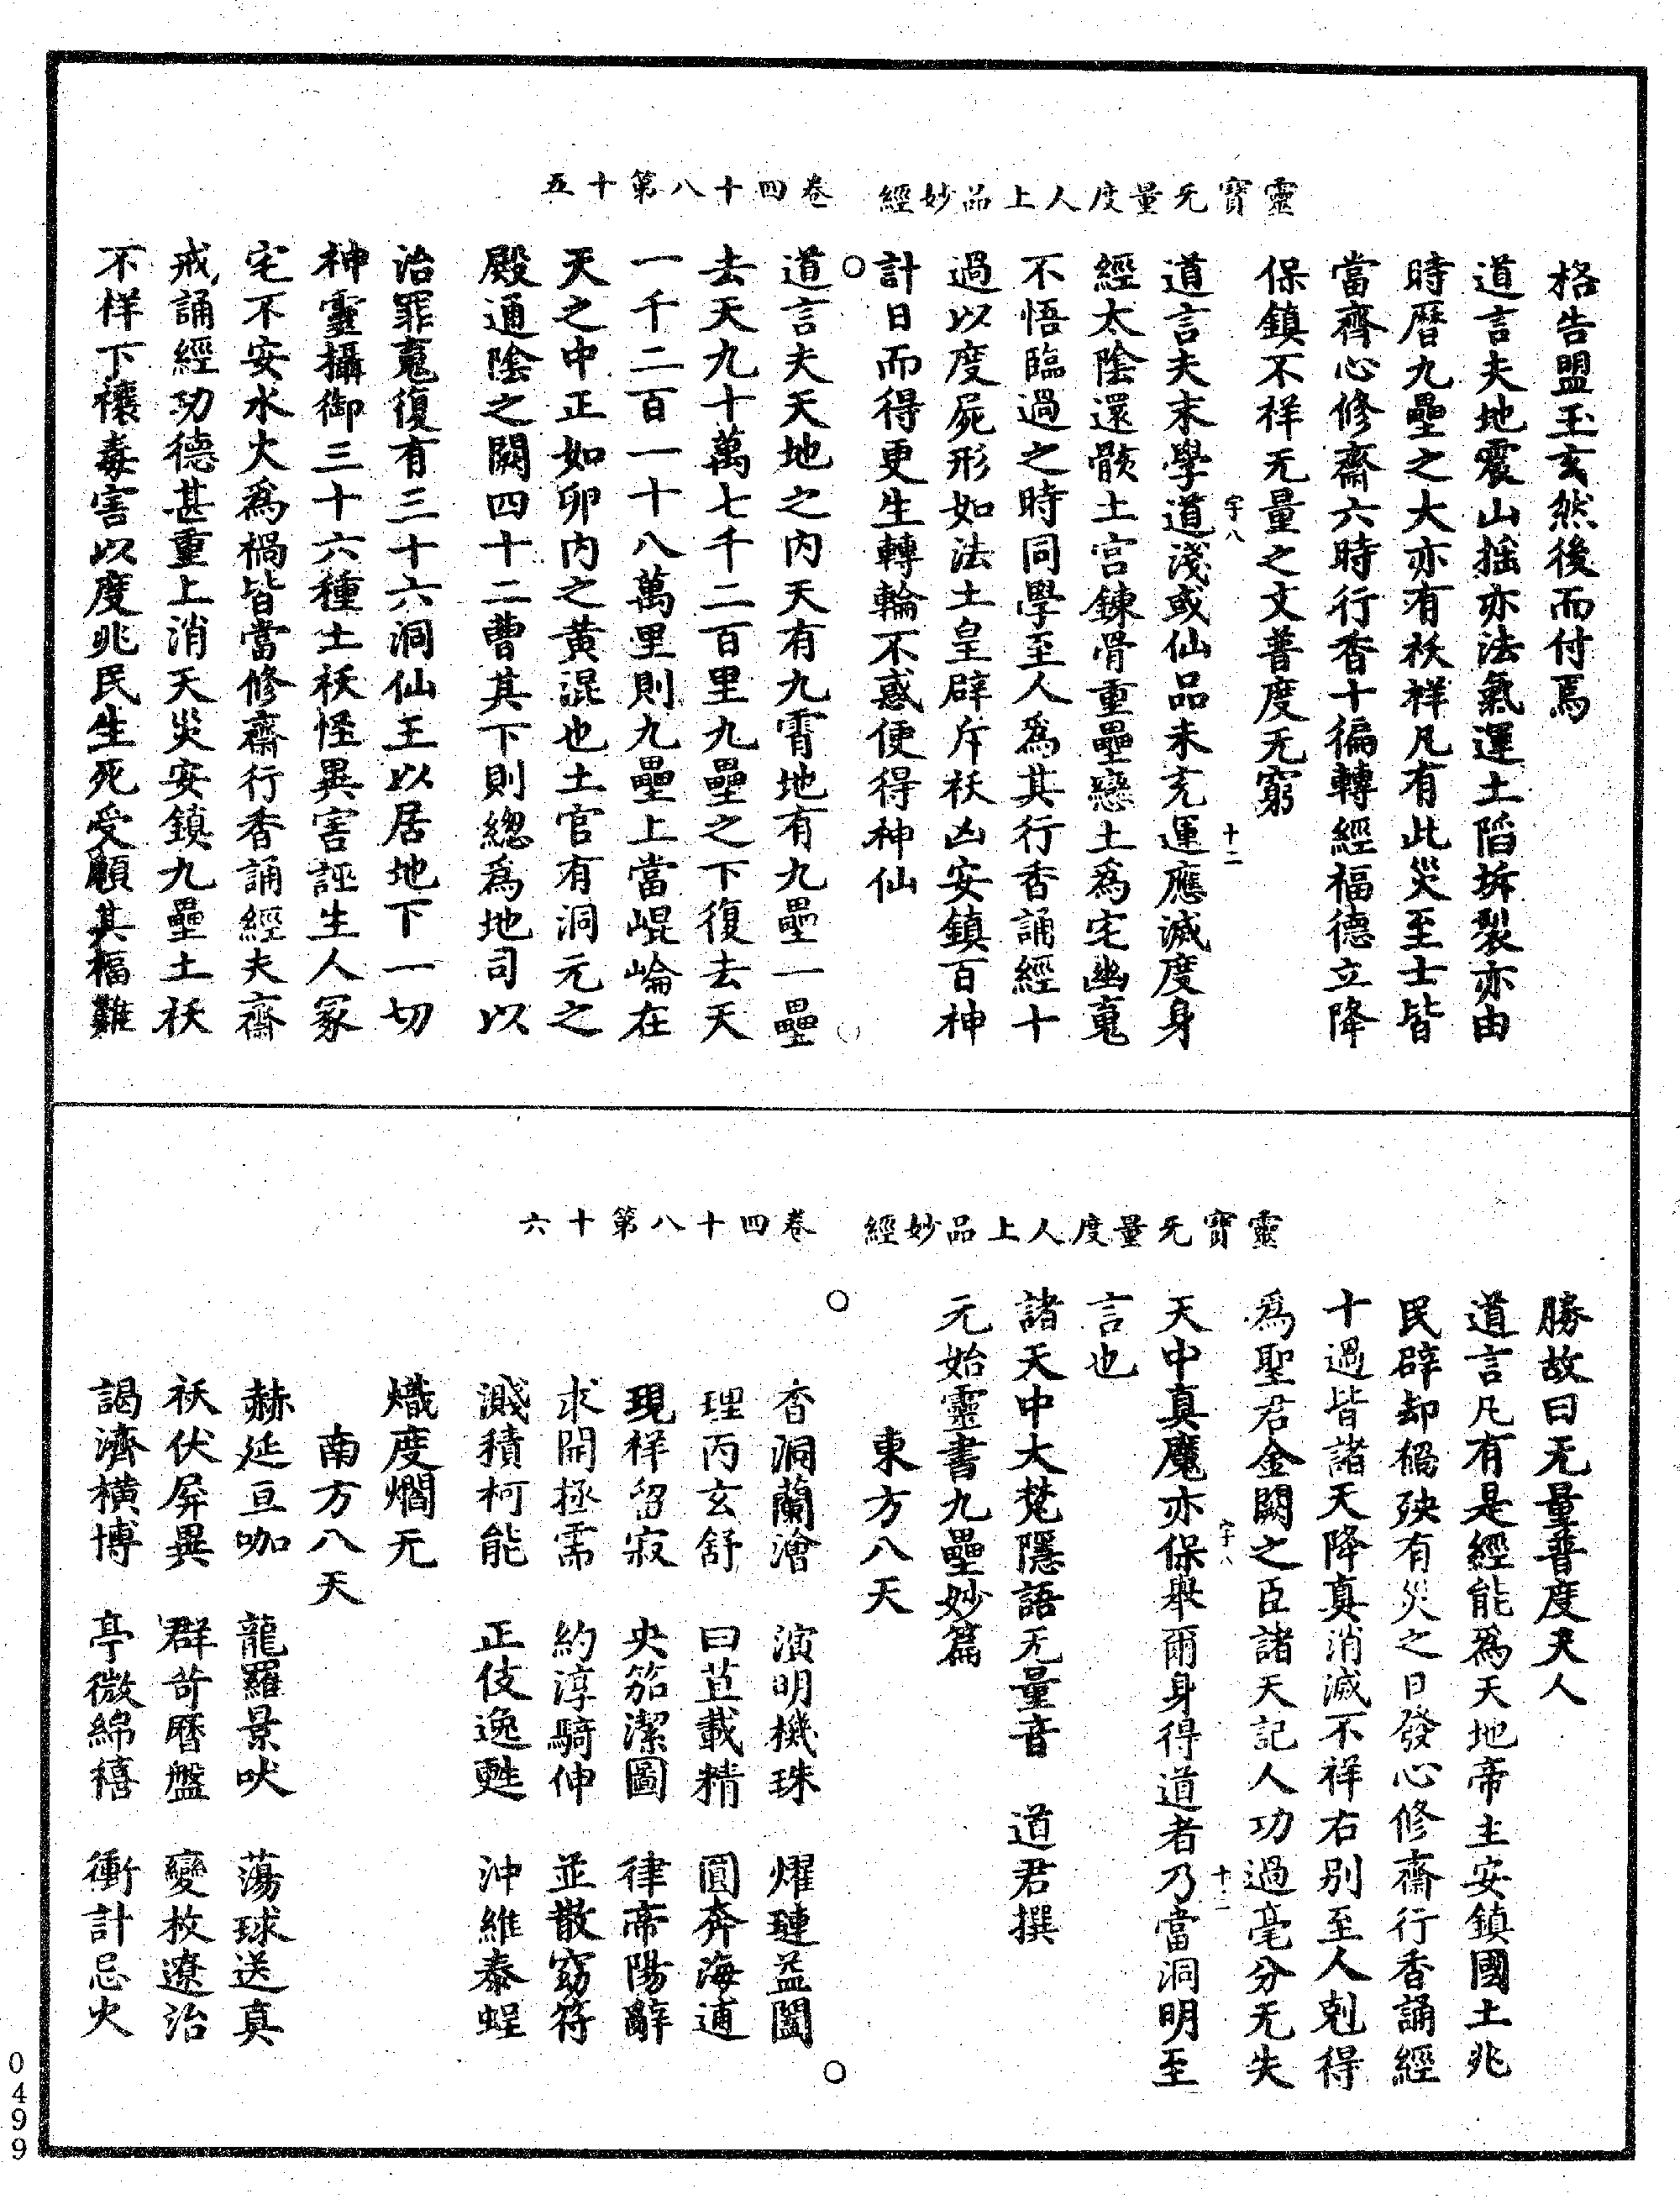 靈寶无量度人上品妙經　卷四十八第十五
格告盟玉玄然後而付焉
道言夫地震山搖亦法氣運土陷坼裂亦由
時曆九壘之大亦有袄祥凡有此災至士皆
當齊心修齋六時行香十徧轉經福德立降
保鎮不祥无量之文普度无窮
宇八　十二
道言夫末學道淺或仙品未充運應滅度身
經太陰還骸土宫鍊骨重壘戀土爲宅幽䰟
不悟臨過之時同學至人爲其行香誦經十
過以度屍形如法土皇辟斥袄凶安鎮百神
計日而得更生轉輪不惑便得神仙
道言夫天地之内天有九霄地有九壘一壘
去天九十萬七千二百里九壘之下復去天
一千二百一十八萬里則九壘上當崐崙在
天之中正如卵内之黃混也土官有洞元之
殿通陰之闕四十二曹其下則緫爲地司以
治罪䰟復有三十六洞仙王以居地下一切
神靈攝御三十六種土袄怪異害誣生人冢
宅不安水火爲禍皆當修齋行香誦經夫齋
戒誦經功德甚重上消天災安鎮九壘土袄
不祥下禳毒害以度兆民生死受願其福難
靈寶无量度人上品妙經　卷四十八第十六
勝故曰无量普度天人
道言凡有是經能爲天地帝主安鎮國土兆
民辟却禍殃有災之日發心修齋行香誦經
十過皆諸天降真消滅不祥右別至人剋得
爲聖君金闕之臣諸天記人功過毫分无失
宇八　十二
天中真魔亦保舉爾身得道者乃當洞明至
言也
諸天中大梵隱語无量音　道君撰
元始靈書九壘妙篇
東方八天
杳洞蘭澮　演明機珠　燿璉益闔
理丙玄舒　曰苴載精　圓奔海逋
現祥留寂　央笳潔圖　律帝陽辭
求開拯需　約淳騎伸　並散窈符
濺積柯能　正伎逸甦　沖維泰蜓
熾度爓无
南方八天
赫延亘咖　龍羅景吠　蕩球送真
袄伏屏異　群苛曆盤　變枚遼治
謁濟橫博　亭微綿禧　衝計忌火
0499